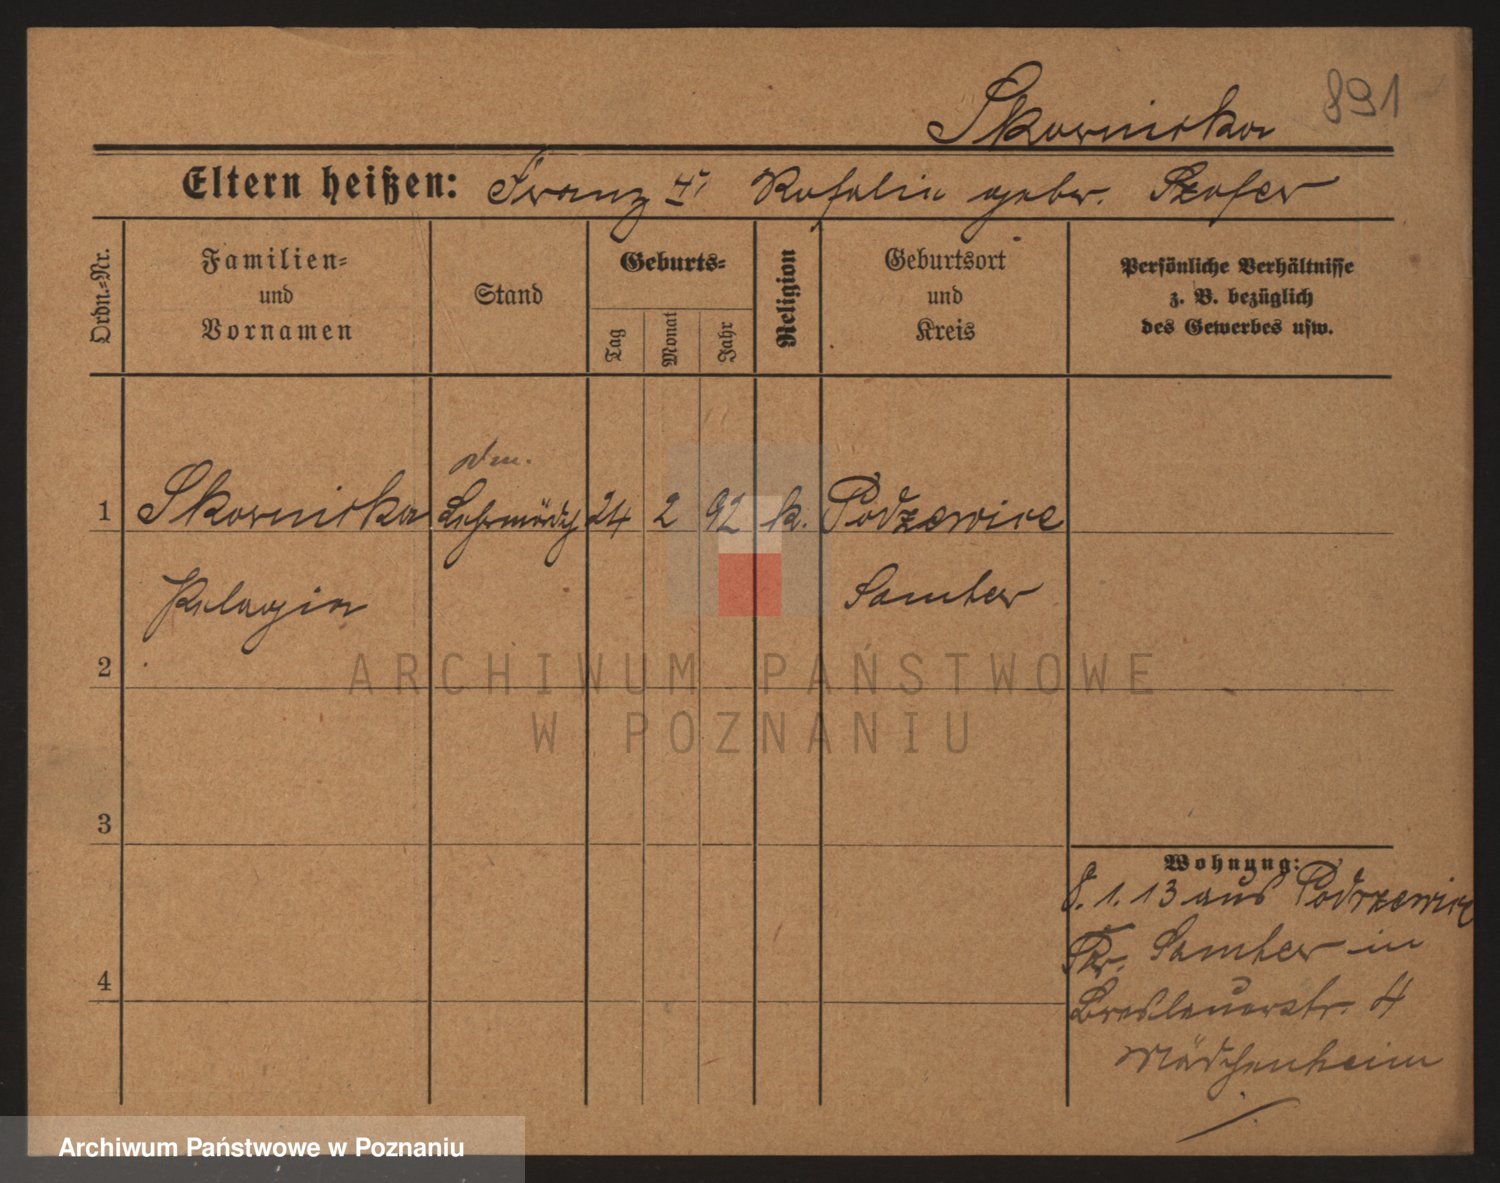 891
Skornicka
Eltern heißen: Franz u. Rosalie gebr. Szafer
Ordn.-Nr.
Familien-
und
Vornamen
Stand
Geburts-
Tag
Monat
Jahr
Religion
Geburtsort
und
Kreis
Persönliche Verhältnisse
z. B. bezüglich
des Gewerbes usw.
1 Skornicka Lehrmädch 24 2 92 k. Podrzewice
Pelagia Samter
2
3
4
Wohnung:
8. 1. 13 aus Podrzewice
Kr. Samter in
Breslauerstr. 4
Mädchenheim
ARCHIWUM PAŃSTWOWE
W POZNANIU
Archiwum Państwowe w Poznaniu